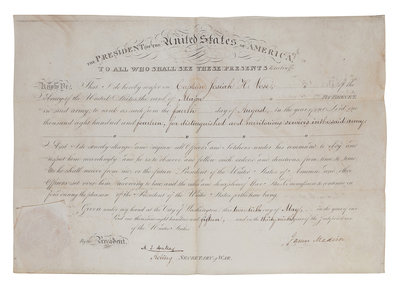 THE PRESIDENT OF THE United States OF AMERICA,
TO ALL WHO SHALL SEE THESE PRESENTS Greeting:
Know Ye, That I do hereby confer on Captain Josiah H. Vose of the
Army of the United States, the rank of Major by brevet
in said army, to rank as such from the fourth day of August, in the year of our Lord one
thousand eight hundred and fourteen, for distinguished and meritorious services in the said army.
And I do strictly charge and require all Officers and Soldiers under his command to obey and
respect him accordingly: and he is to observe and follow such orders and directions from time to time
as he shall receive from me or the future President of the United States of America and other
Officers set over him according to law, and the rules and discipline of War. This Commission to continue in
force during the pleasure of the President of the United States for the time being.
Given under my hand at the City of Washington this day of May in the year of our
Lord one thousand eight hundred and fifteen, and in the thirty ninth year of the Independence
of the United States.
By the President,
James Madison
A. J. Dallas
Acting SECRETARY of WAR.